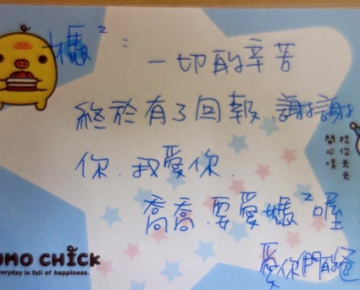 媽²:
一切的辛苦
終於有了回報,謝謝
你,我愛你.
喬喬.要愛媽²喔
愛你們的爸
祝你天天
開心喔
UMO CHICK
everyday is full of happiness.